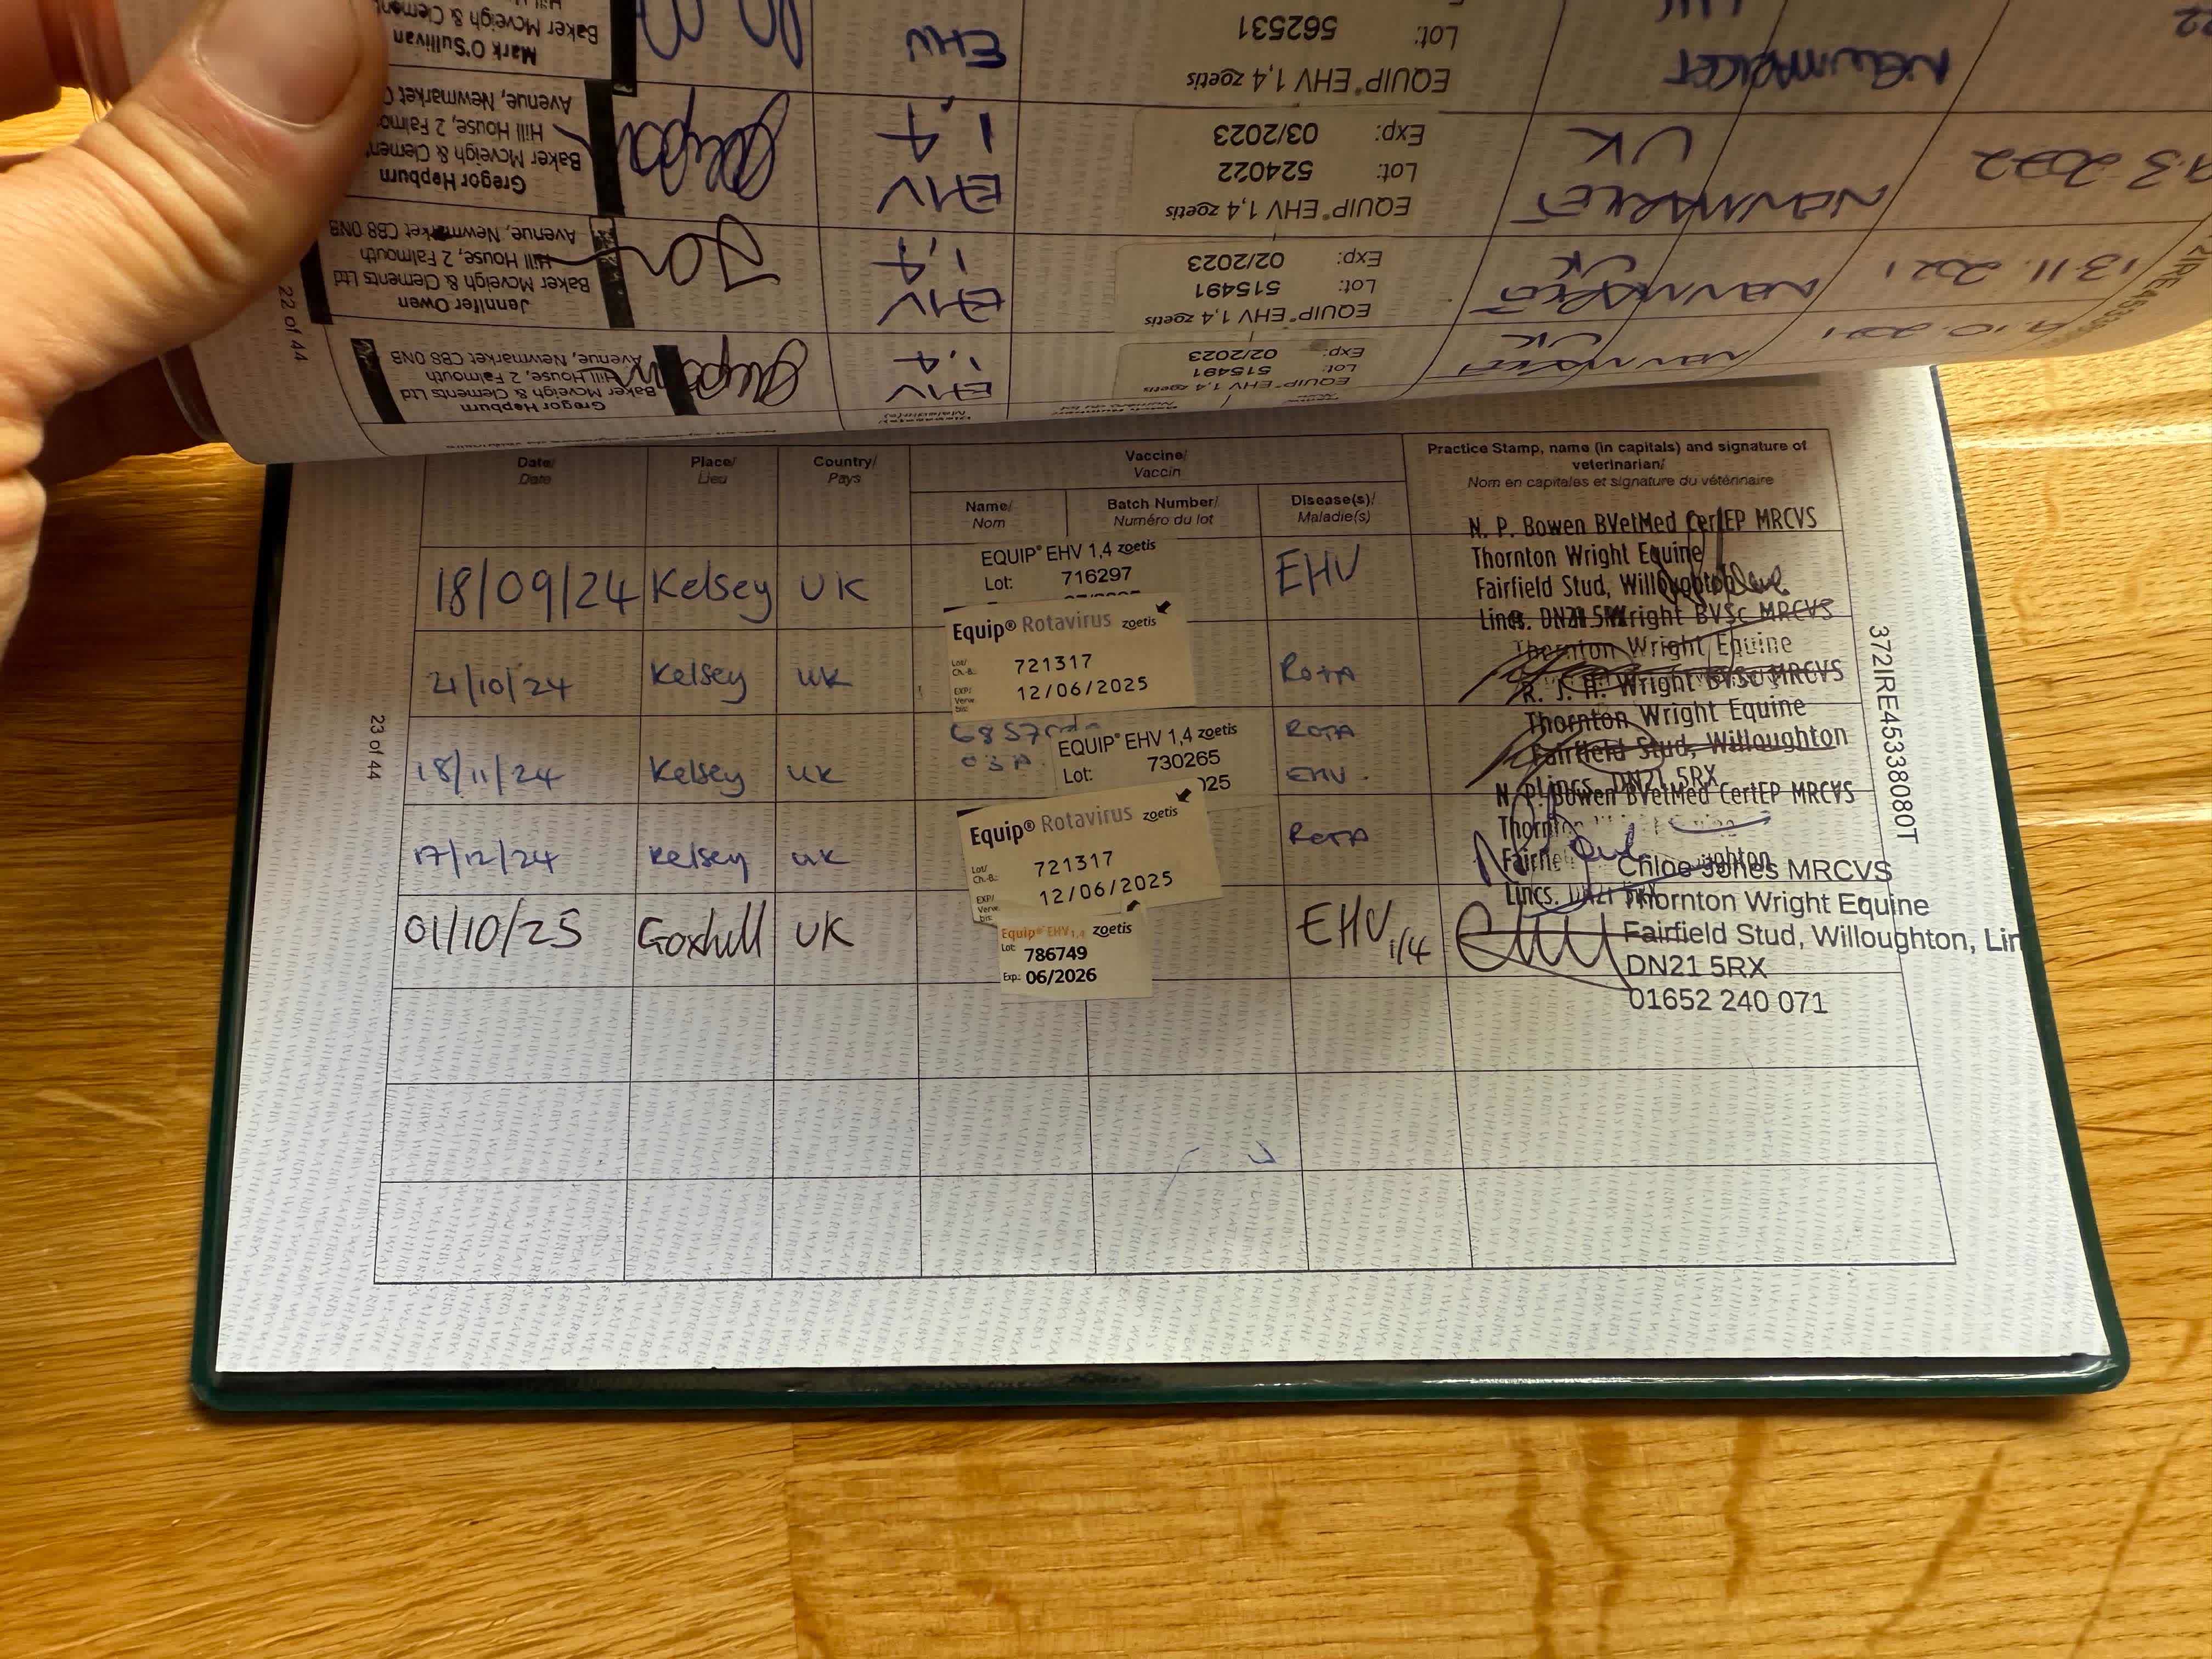 Mark O'Sullivan
Baker Mcveigh & Clement
EHV
Lot: 562531
EQUIP® EHV 1,4 zoetis
NEWMARKET
Gregor Hepburn
Baker Mcveigh & Clement
Hill House, 2 Falmo
Avenue, Newmarket C
EHV
1,4
EQUIP® EHV 1,4 zoetis
Lot: 524022
Exp: 03/2023
NEWMARKET
UK
9.3.2022
Jennifer Owen
Baker Mcveigh & Clements Ltd
Hill House, 2 Falmouth
Avenue, Newmarket CB8 0NB
EHV
1,4
EQUIP® EHV 1,4 zoetis
Lot: 515491
Exp: 02/2023
NEWMARKET
UK
13.11.2021
Gregor Hepburn
Baker Mcveigh & Clements Ltd
Hill House, 2 Falmouth
Avenue, Newmarket CB8 0NB
EHV
1,4
EQUIP® EHV 1,4 zoetis
Lot: 515491
Exp: 02/2023
NEWMARKET
UK
.10.2021
22 of 44
Date/
Date
Place/
Lieu
Country/
Pays
Vaccine/
Vaccin
Name/
Nom
Batch Number/
Numéro du lot
Disease(s)/
Maladie(s)
Practice Stamp, name (in capitals) and signature of
veterinarian/
Nom en capitales et signature du vétérinaire
18/09/24 Kelsey UK
EQUIP® EHV 1,4 zoetis
Lot: 716297
EHV
N. P. Bowen BVetMed CertEP MRCVS
Thornton Wright Equine
Fairfield Stud, Willoughton
Lincs. DN21 5RX
21/10/24 Kelsey UK
Equip® Rotavirus zoetis
Lot/
Ch.-B.: 721317
EXP/
Verw.
bis: 12/06/2025
ROTA
Wright BVSc MRCVS
Thornton Wright Equine
18/11/24 Kelsey UK
EQUIP® EHV 1,4 zoetis
Lot: 730265
025
ROTA
EHV.
R. J. H. Wright BVSc MRCVS
Thornton Wright Equine
Fairfield Stud, Willoughton
Lincs. DN21 5RX
17/12/24 Kelsey UK
Equip® Rotavirus zoetis
Lot/
Ch.-B.: 721317
EXP/
Verw.
bis: 12/06/2025
ROTA
N. P. Bowen BVetMed CertEP MRCVS
01/10/25 Goxhill UK
Equip® EHV 1,4 zoetis
Lot: 786749
Exp: 06/2026
EHV 1/4
Chloe Jones MRCVS
Thornton Wright Equine
Fairfield Stud, Willoughton, Lin
DN21 5RX
01652 240 071
23 of 44
372IRE45338080T